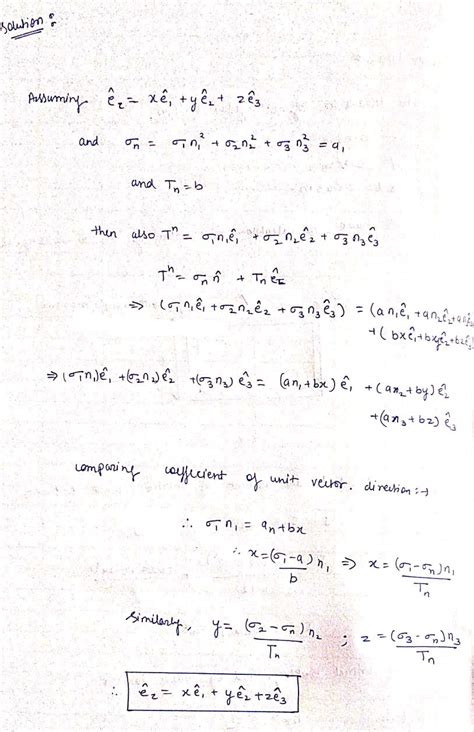 solution :
Assuming ê₂ = xê₁ + yê₂ + zê₃.
and σn = σ₁n₁² + σ₂n₂² + σ₃n₃² = a,
and Tn = b
then also Tⁿ = σ₁n₁ê₁ + σ₂n₂ê₂ + σ₃n₃ê₃
Tⁿ = σn n̂ + Tn ê
⇒ (σ₁n₁ê₁ + σ₂n₂ê₂ + σ₃n₃ê₃) = (an₁ê₁ + an₂ê₂ + an₃ê₃
+ (bxê₁ + byê₂ + bzê₃)
⇒ (σ₁n₁)ê₁ + (σ₂n₂)ê₂ + (σ₃n₃)ê₃ = (an₁ + bx)ê₁ + (an₂ + by)ê₂
+ (an₃ + bz)ê₃
comparing coefficient of unit vector. direction :→
∴ σ₁n₁ = an + bx
∴ x = (σ₁ - a)n₁ / b ⇒ x = (σ₁ - σn)n₁ / Tn
Similarly, y = (σ₂ - σn)n₂ / Tn ; z = (σ₃ - σn)n₃ / Tn
∴ ê₂ = xê₁ + yê₂ + zê₃